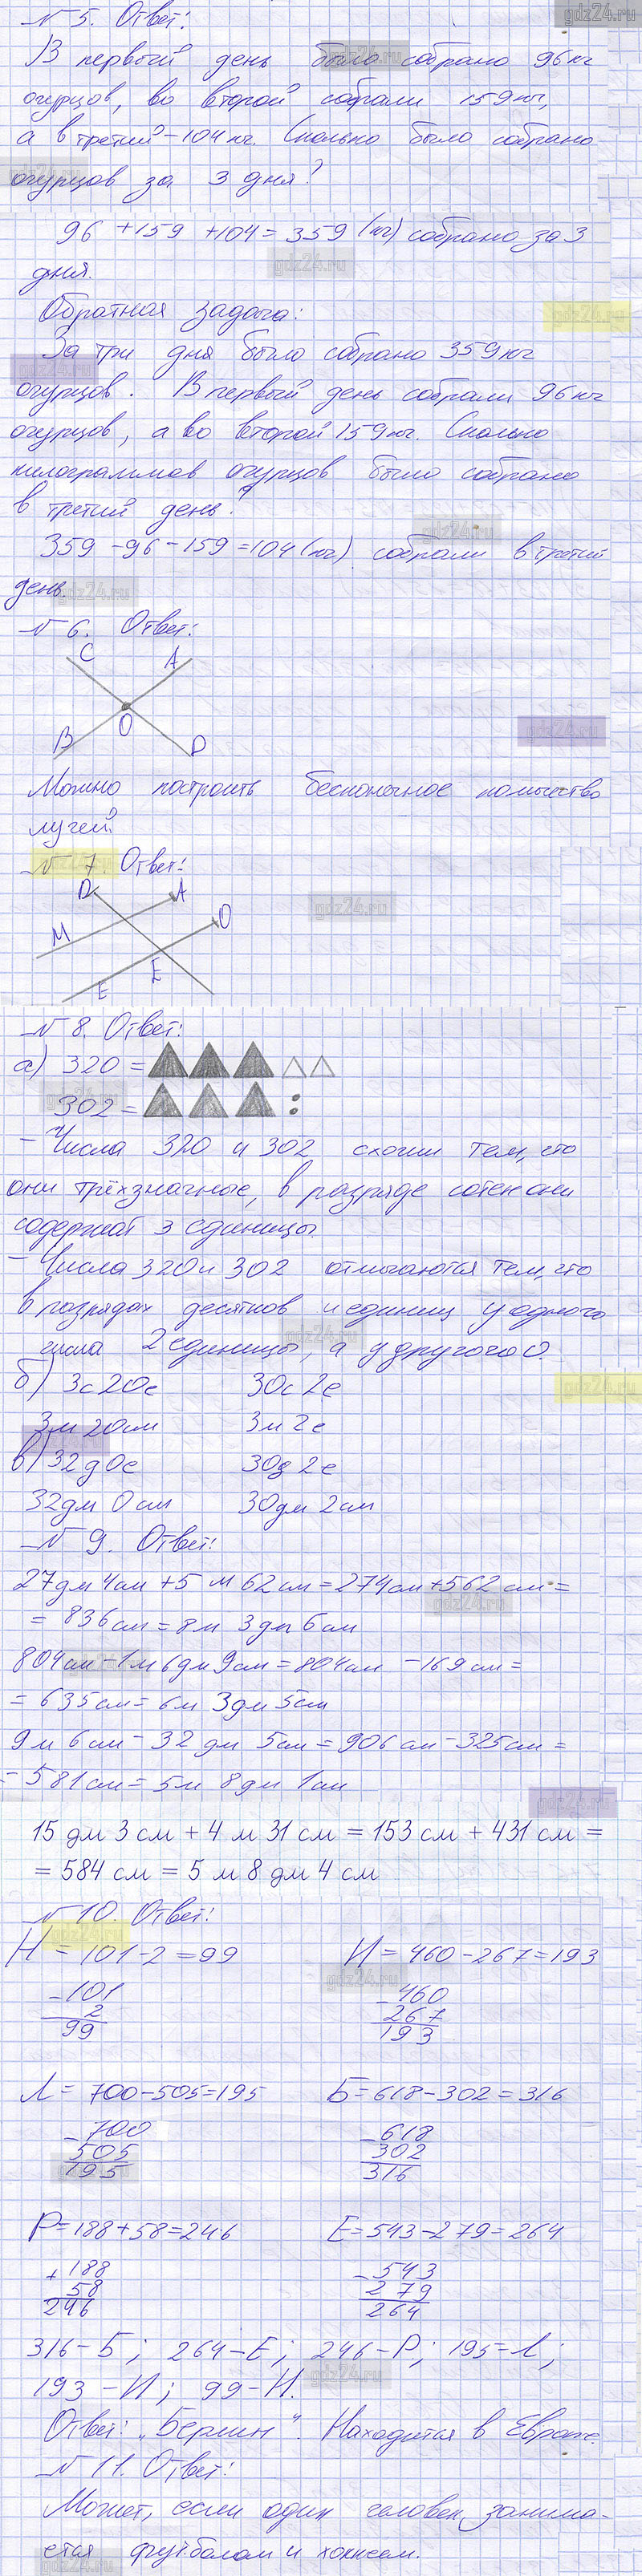 № 5. Ответ:
В первый день было собрано 96 кг
огурцов, во второй собрали 159 кг,
а в третий – 104 кг. Сколько было собрано
огурцов за 3 дня?
96 + 159 + 104 = 359 (кг) собрано за 3
дня.
Обратная задача:
За три дня было собрано 359 кг
огурцов. В первый день собрали 96 кг
огурцов, а во второй 159 кг. Сколько
килограммов огурцов было собрано
в третий день?
359 - 96 - 159 = 104 (кг) собрали в третий
день.
№ 6. Ответ:
C A
O
B D
Можно построить бесконечное количество
лучей.
№ 7. Ответ:
D A O
M
E
E
№ 8. Ответ:
а) 320 =
302 =
- Числа 320 и 302 схожи тем, что
они трёхзначные, в разряде сотен они
содержат 3 единицы.
- Числа 320 и 302 отличаются тем, что
в разрядах десятков и единиц у одного
числа 2 единицы, а у другого 0.
б) 3с 20е 30с 2е
3м 20см 3м 2е
в) 32д 0е 30д 2е
32дм 0см 30дм 2см
№ 9. Ответ:
27дм 4см + 5 м 62см = 274см + 562 см =
= 836см = 8м 3дм 6см
804см - 1м 6дм 9см = 804см - 169см =
= 635см = 6м 3дм 5см
9м 6см - 32 дм 5см = 906см - 325см =
= 581см = 5м 8дм 1см
15 дм 3 см + 4 м 31 см = 153 см + 431 см =
= 584 см = 5 м 8 дм 4 см
№ 10. Ответ:
Н = 101 - 2 = 99 И = 460 - 267 = 193
- 101 - 460
2 267
99 193
Л = 700 - 505 = 195 Б = 618 - 302 = 316
- 700 - 618
505 302
195 316
Р = 188 + 58 = 246 Е = 543 - 279 = 264
+ 188 - 543
58 279
246 264
316 – Б; 264 – Е; 246 – Р; 195 = Л;
193 – И; 99 – Н.
Ответ: „Берлин" Находится в Европе.
№ 11. Ответ:
Может, если один человек занима-
ется футболом и хоккеем.
gdz24.ru